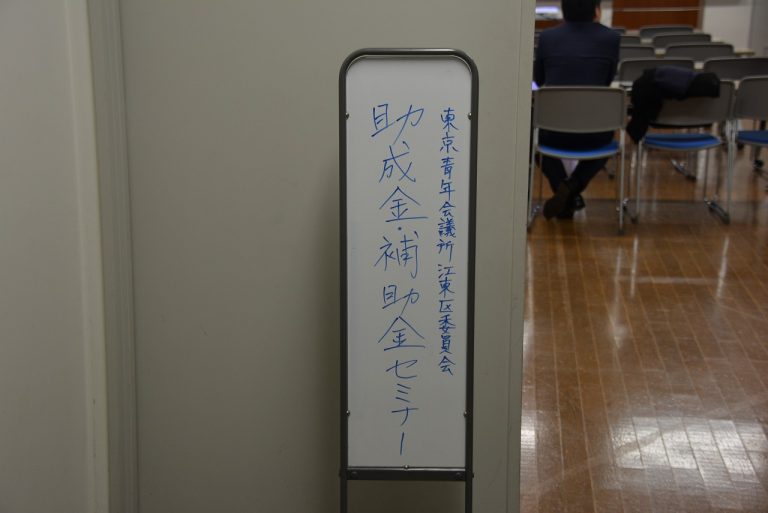 東京青年会議所 江東区委員会
助成金・補助金セミナー